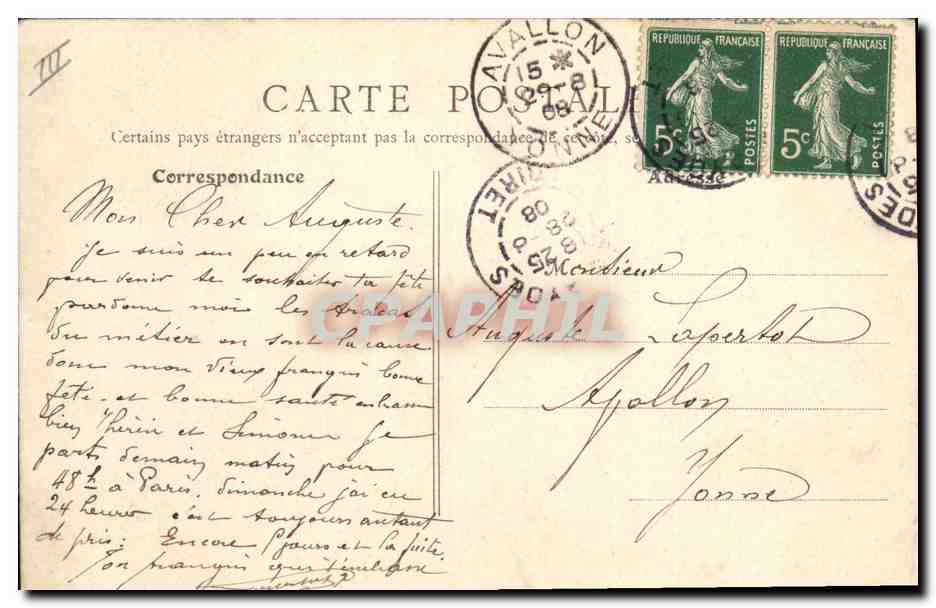 III
CARTE POSTALE
Certains pays étrangers n'acceptent pas la correspondance de
Correspondance
Adresse
AVALLON
15 *
29-8
08
YONNE
LOIRET
08
REPUBLIQUE FRANÇAISE
5c
POSTES
REPUBLIQUE FRANÇAISE
5c
POSTES
Mon Cher Auguste.
Je suis un peu en retard
pour venir te souhaiter ta fête
pardonne moi les tracas
du métier en sont la cause
donc mon vieux françois bonne
fête. et bonne santé embrasse
bien et Simone Je
parts demain matin pour
48h à Paris. dimanche j'ai eu
24 heures c'est toujours autant
de pris: Encore jours et la fuite.
Ton françois qui t'embrasse
Monsieur
Auguste Lapertot
Avallon
Yonne
CPAPHIL